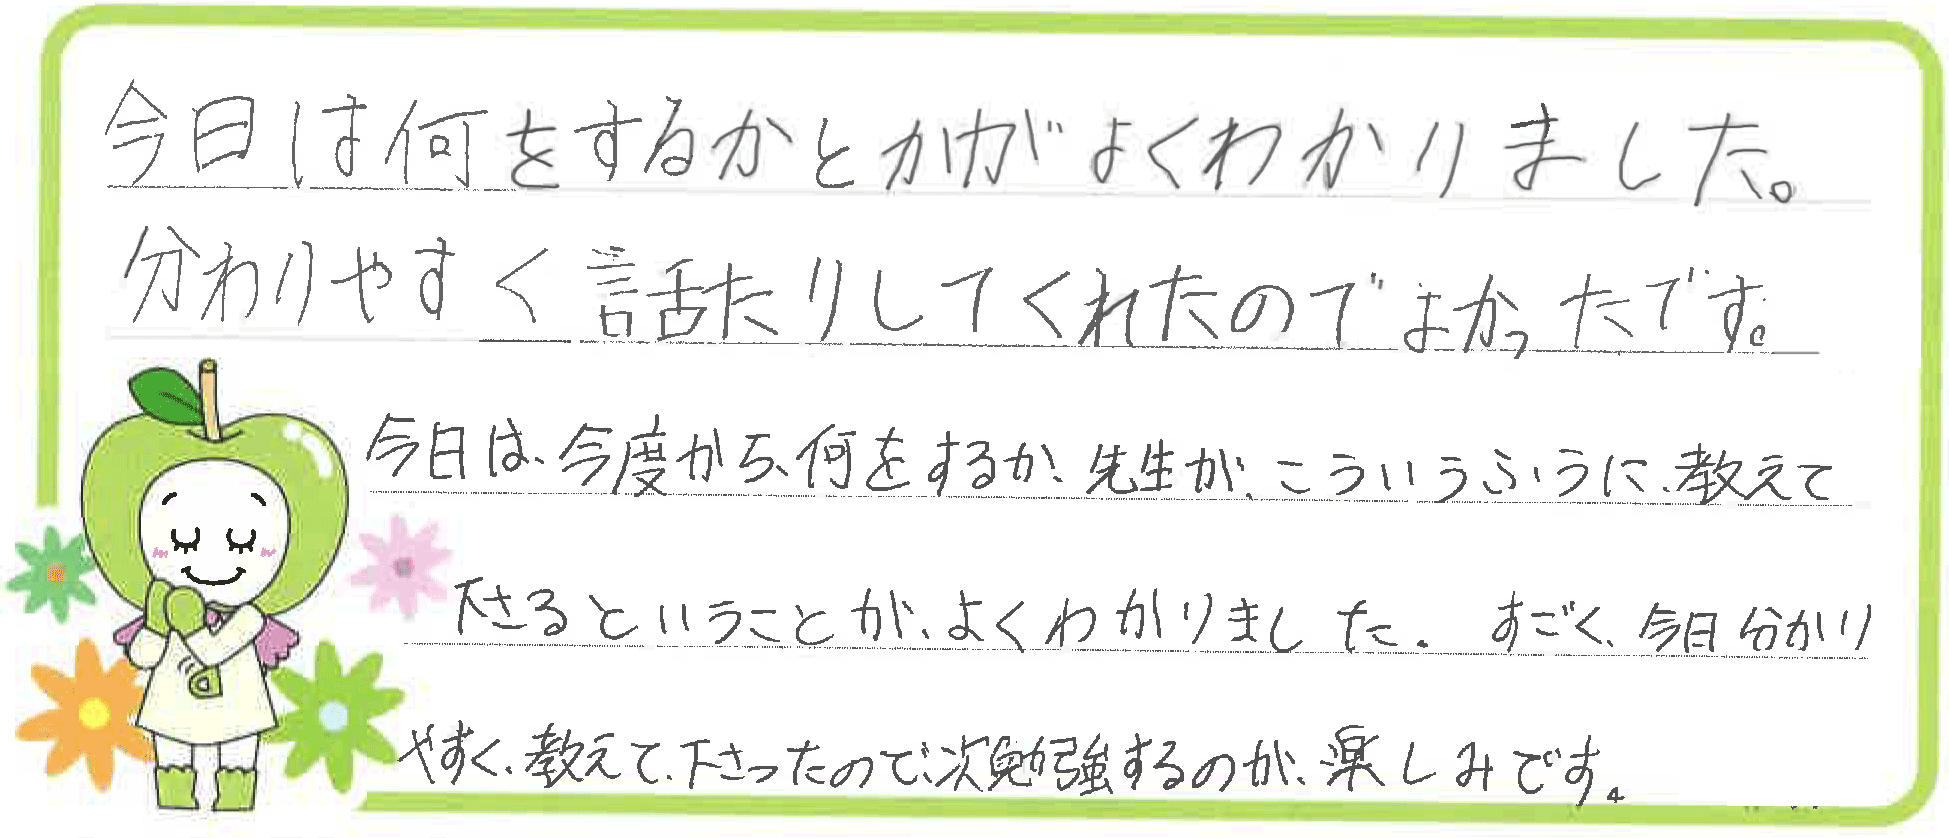 今日は何をするかとかがよくわかりました。
分わりやすく話たりしてくれたのでよかったです。
今日は、今度から、何をするか、先生が、こういうふうに、教えて
下さるということが、よくわかりました。すごく、今日分かり
やすく、教えて、下さったので、次勉強するのが、楽しみです。